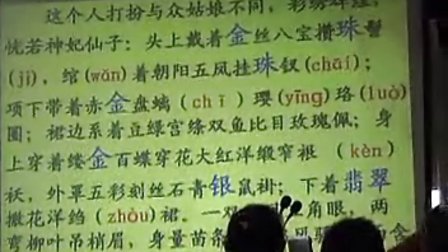 这个人打扮与众姑娘不同，彩绣辉煌，
恍若神妃仙子：头上戴着金丝八宝攒珠髻
(jì)，绾(wǎn)着朝阳五凤挂珠钗(chāi)；
项下带着赤金盘螭(chī)璎(yīng)珞(luò)
圈；裙边系着豆绿宫绦双鱼比目玫瑰佩；身
上穿着缕金百蝶穿花大红洋缎窄裉（kèn）
袄，外罩五彩刻丝石青银鼠褂；下着翡翠
撒花洋绉(zhòu)裙。一双 角眼，两
弯柳叶吊梢眉，身量苗条